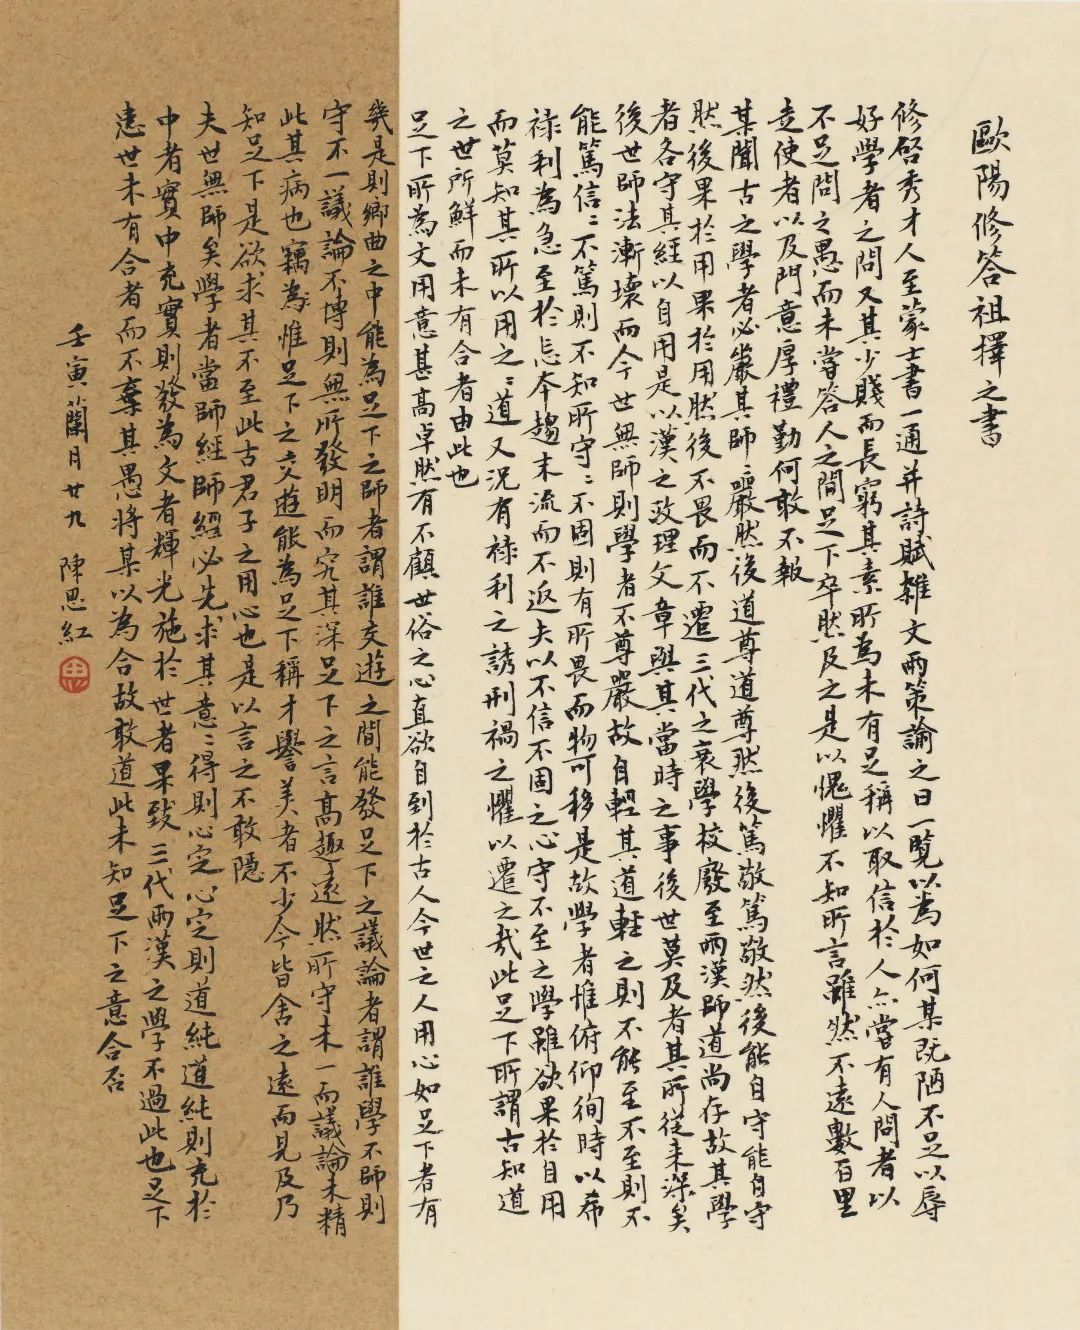 歐陽修答祖擇之書
修啓秀才人至蒙士書一通并詩賦雜文兩策諭之曰一覽以為如何某既陋不足以辱
好學者之問又其少賤而長窮其素所為未有足稱以取信於人亦嘗有人問者以
不足問之愚而未嘗答人之問足下卒然及之是以愧懼不知所言雖然不遠數百里
走使者以及門意厚禮勤何敢不報
某聞古之學者必嚴其師〻嚴然後道尊道尊然後篤敬篤敬然後能自守能自守
然後果於用果於用然後不畏而不遷三代之衰學校廢至兩漢師道尚存故其學
者各守其經以自用是以漢之政理文章與其當時之事後世莫及者其所從来深矣
後世師法漸壞而今世無師則學者不尊嚴故自輕其道輕之則不能至不至則不
能篤信〻不篤則不知所守〻不固則有所畏而物可移是故學者惟俯仰徇時以希
祿利為急至於忘本趨末流而不返夫以不信不固之心守不至之學雖欲果於自用
而莫知其所以用之〻道又況有祿利之誘刑禍之懼以遷之哉此足下所謂古知道
之世所鮮而未有合者由此也
足下所為文用意甚高卓然有不顧世俗之心直欲自到於古人今世之人用心如足下者有
幾是則鄉曲之中能為足下之師者謂誰交遊之間能發足下之議論者謂誰學不師則
守不一議論不博則無所發明而究其深足下之言高趣遠然所守未一而議論未精
此其病也竊為惟足下之交遊能為足下稱才譽美者不少今皆舍之遠而見及乃
知足下是欲求其不至此古君子之用心也是以言之不敢隱
夫世無師矣學者當師經師經必先求其意〻得則心定心定則道純道純則充於
中者實中充實則發為文者輝光施於世者果致三代兩漢之學不過此也足下
患世未有合者而不棄其愚將某以為合故敢道此未知足下之意合否
壬寅蘭月廿九 陳思紅